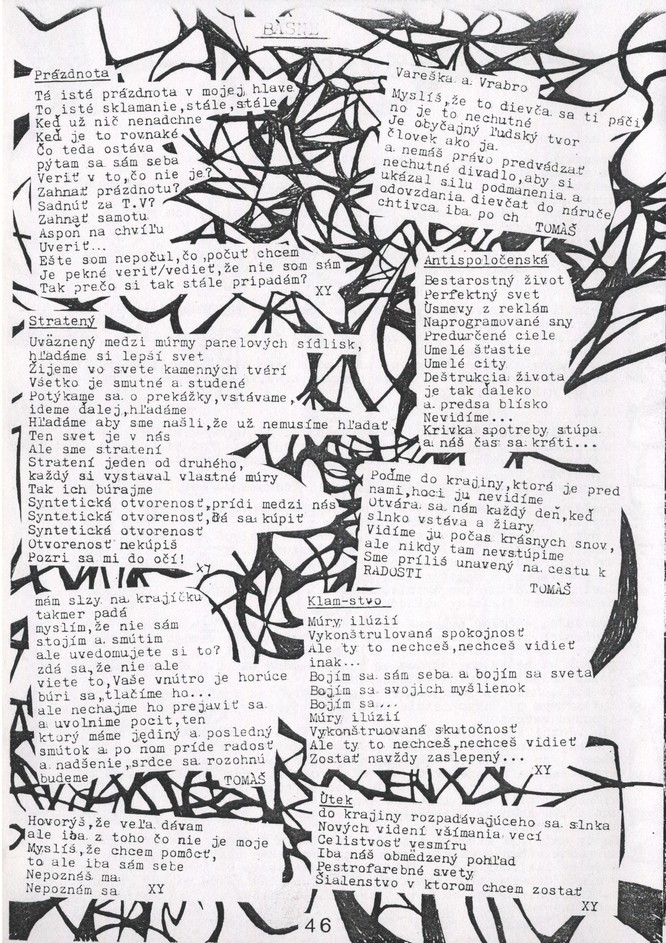 BÁSNE
Prázdnota
Tá istá prázdnota v mojej hlave
To isté sklamanie,stále,stále
Keď už nič nenadchne
Keď je to rovnaké
Čo teda ostáva
pýtam sa sám seba
Veriť v to,čo nie je?
Zahnať prázdnotu?
Sadnúť za T.V?
Zahnať samotu
Aspoň na chvíľu
Uveriť...
Ešte som nepočul,čo počuť chcem
Je pekné veriť/vedieť,že nie som sám
Tak prečo si tak stále pripadám?
XY
Vareška a Vrabro
Myslíš,že to dievča sa ti páči
no je to nechutné
Je obyčajný ľudský tvor
človek ako ja
a nemáš právo predvádzať
nechutné divadlo,aby si
ukázal silu podmanenia a
odovzdania dievčat do náruče
chtivca iba po ch
TOMÁŠ
Antispoločenská
Bestarostný život
Perfektný svet
Úsmevy z reklám
Naprogramované sny
Predurčené ciele
Umelé šťastie
Umelé city
Deštrukcia života
je tak ďaleko
a predsa blísko
Nevidíme...
Krivka spotreby stúpa
a náš čas sa kráti...
Stratený
Uväznený medzi múrmy panelových sídlisk,
hľadáme si lepší svet
Žijeme vo svete kamenných tvérí
Všetko je smutné a studené
Potýkame sa o prekážky,vstávame,
ideme ďalej,hľadáme
Hľadáme aby sme našli,že už nemusíme hľadať
Ten svet je v nás
Ale sme stratení
Stratení jeden od druhého,
každý si vystaval vlastné múry
Tak ich búrajme
Syntetická otvorenosť,prídi medzi nás
Syntetická otvorenosť,dá sa kúpiť
Syntetická otvorenosť
Otvorenosť nekúpiš
Pozri sa mi do očí!
XY
Poďme do krajiny,ktorá je pred
nami,hoci ju nevidíme
Otvára sa nám každý deň,keď
slnko vstáva a žiary
Vidíme ju počas krásnych snov,
ale nikdy tam nevstúpime
Sme príliš unavený na cestu k
RADOSTI
TOMÁŠ
mám slzy na krajíčku
takmer padá
myslím,že nie sám
stojím a smútim
ale uvedomujete si to?
zdá sa,že nie ale
viete to,Vaše vnútro je horúce
búri sa,tlačíme ho...
ale nechajme ho prejaviť sa
a uvolnime pocit,ten
ktorý máme jediný a posledný
smútok a po ňom príde radosť
a nadšenie,srdce sa rozohnú
budeme
TOMÁŠ
Klam-stvo
Múry ilúzií
Vykonštrulovaná spokojnosť
Ale ty to nechceš,nechceš vidieť
inak...
Bojím sa sám seba a bojím sa sveta
Bojím sa svojich myšlienok
Bojím sa...
Múry ilúzií
Vykonštruovaná skutočnosť
Ale ty to nechceš,nechceš vidieť
Zostať navždy zaslepený...
XY
Hovorýš,že veľa dávam
ale iba z toho čo nie je moje
Myslíš,že chcem pomôcť,
to ale iba sám sebe
Nepoznáš ma
Nepoznám sa XY
Útek
do krajiny rozpadávajúceho sa slnka
Nových videní všímania vecí
Celistvosť vesmíru
Iba náš obmedzený pohľad
Pestrofarebné svety
Šialenstvo v ktorom chcem zostať
XY
46